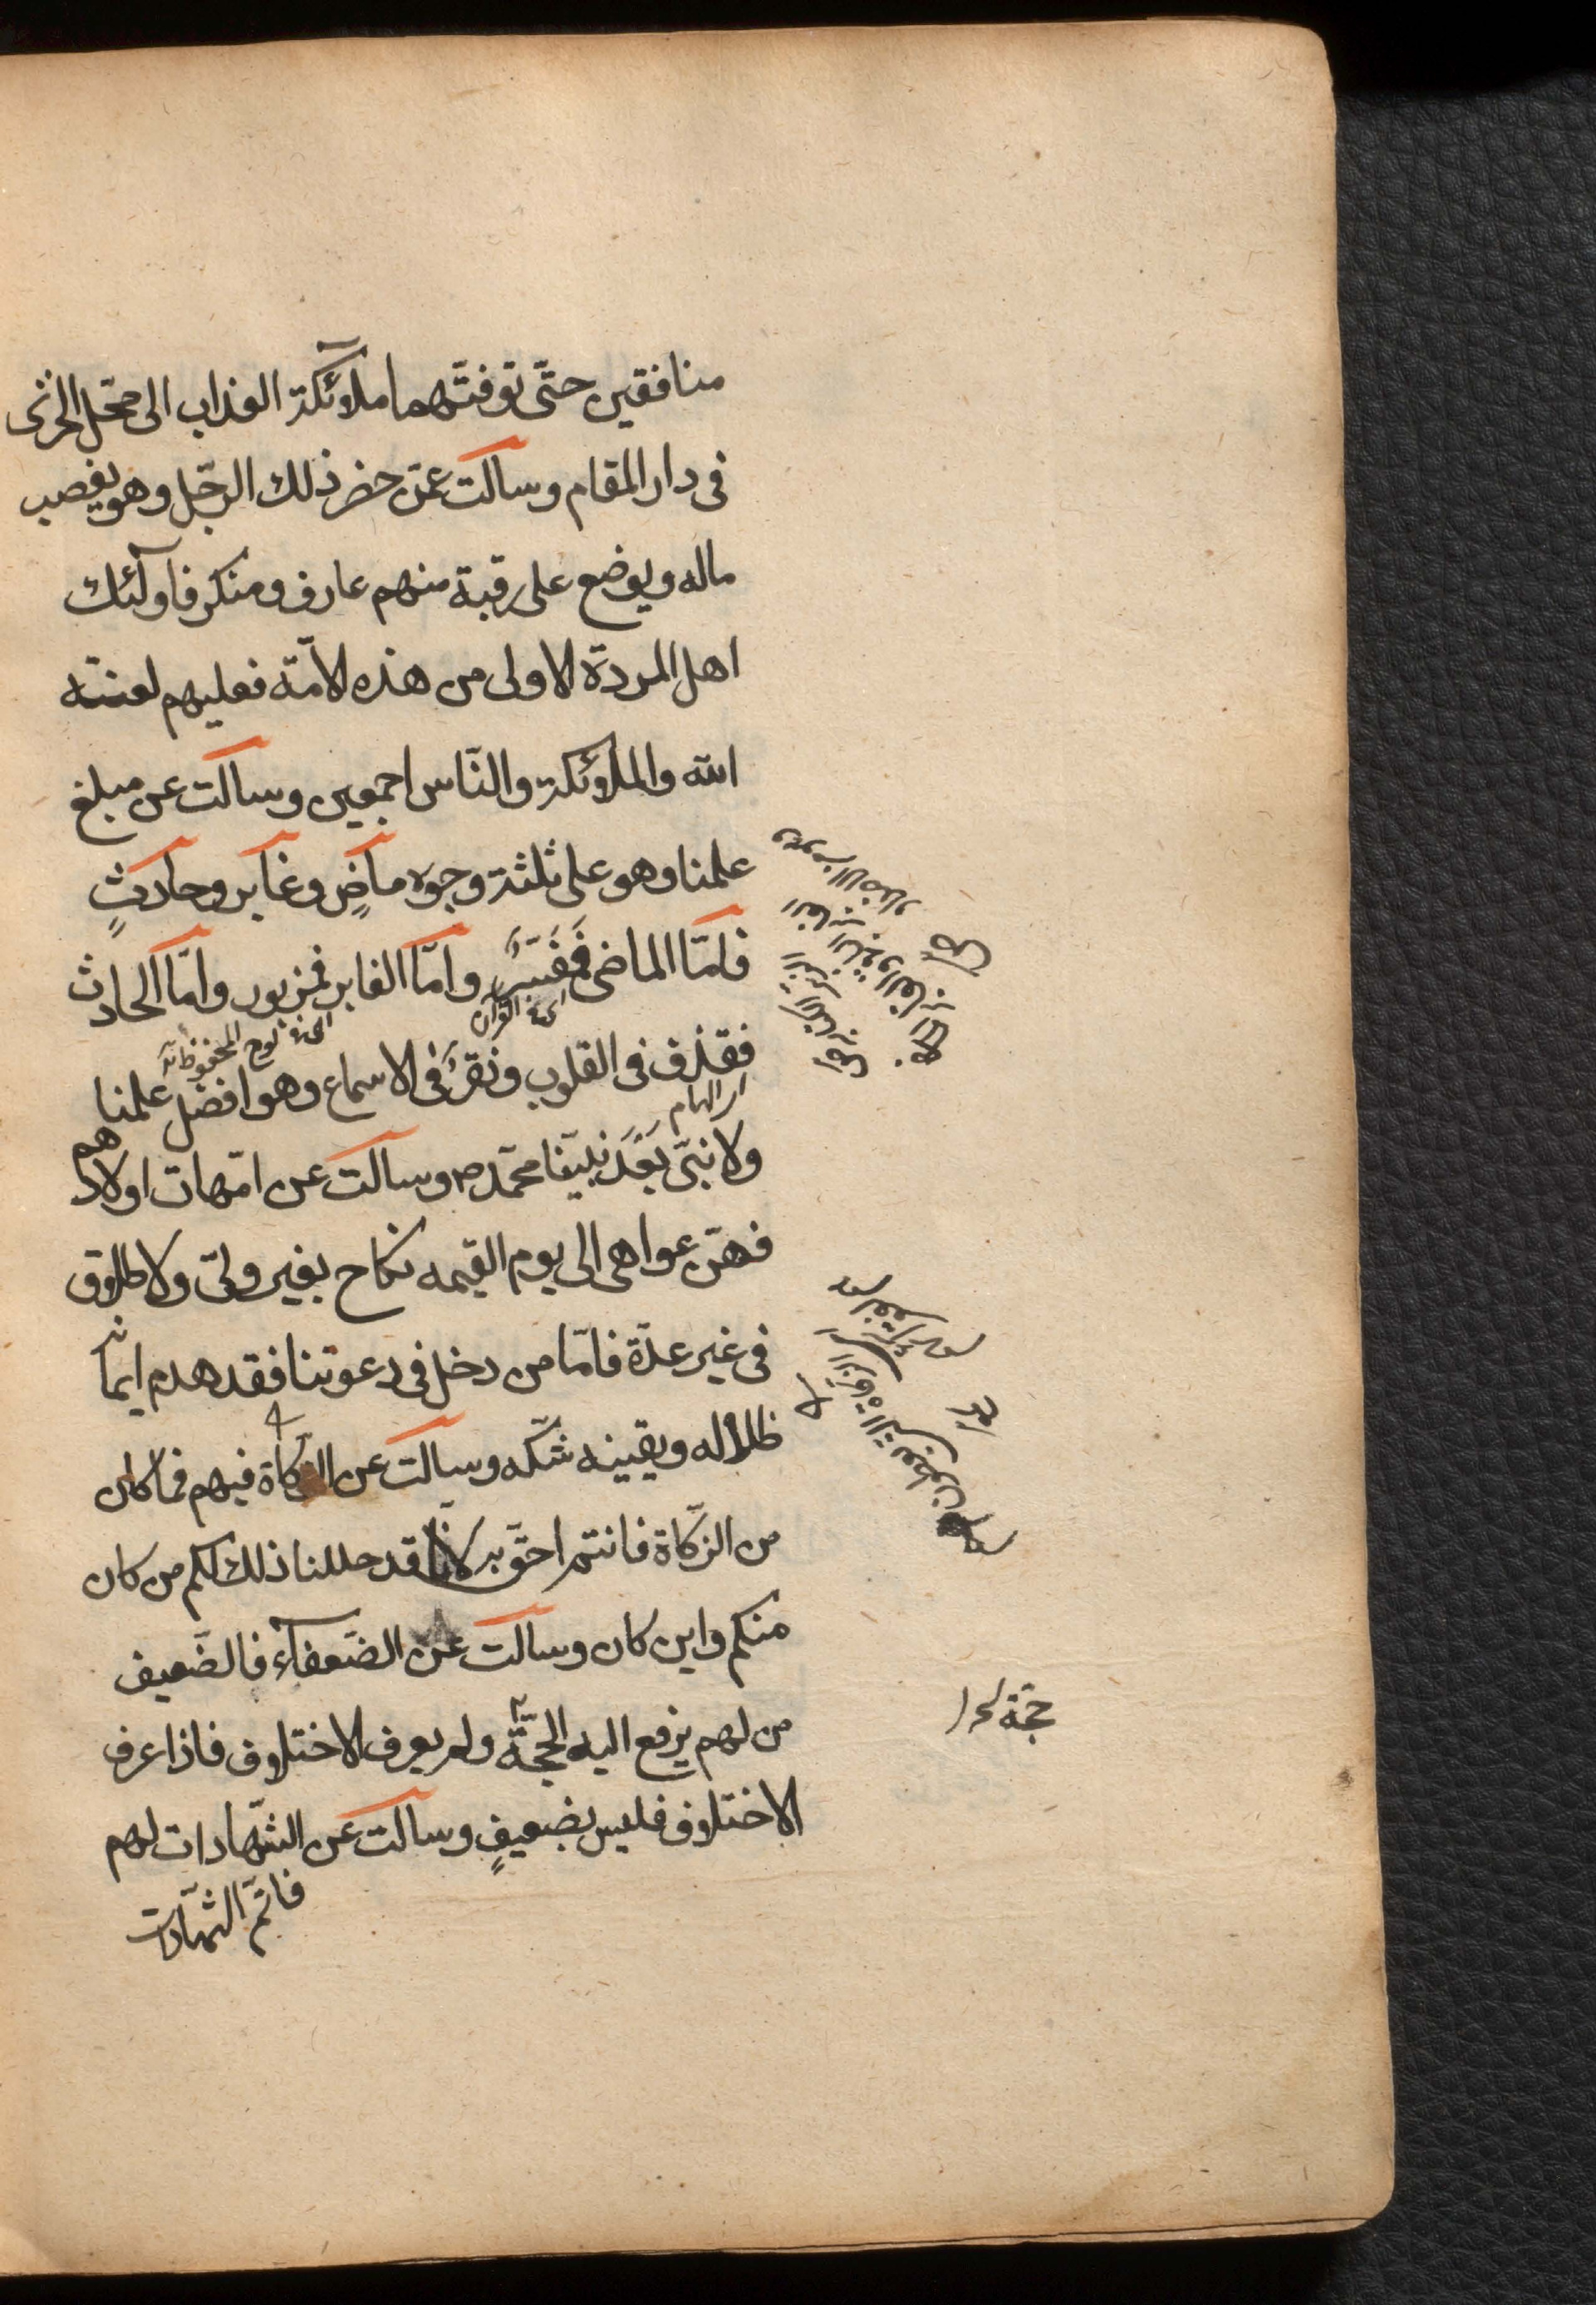 منافقين حتّى توفتّهما ملآئكة العذاب الى محّل الخزى
فى دار المقام وسالت عمّن حضر ذلك الرجّل وهو يغصب
ماله ويوضع على رقبة منهم عارف ومنكر فاولٓئك
اهل المردّة الاولى من هذه الامّة فعليهم لعنته
الله والملائكة والنّاس اجمعين وسالت عن مبلغ
علمنا وهو على ثلثة وجوه ماضٍ وغابر وحادثٍ
فامّا الماضى فَمُفَسَّرٌ وامّا الغابر فمزبور وامّا الحادث
اى فى القرآن
اى فى لوح المحفوظ
فقذف فى القلوب ونقر فى الاسماع وهو افضل علمنا
اى الهام
ولا نبىّ بَعْدَ نبيّنا محمّد ص وسالت عن امّهات اولادهم
فهنّ عواهى الى يوم القيمه نكاح بغير ولىّ ولا طلاق
فى غير عدّة فامّا من دخل فى دعوتنا فقد هدم ايمانه
ظلاله ويقينه شكّه وسالت عن الزكاة فيهم فما كان
من الزّكاة فانتم احقّ به لانّا قد حللنا ذلك لكم من كان
منكم واين كان وسالت عن الضعفآء فالضّعيف
من لهم يرفع اليه الحجّة ولم يعرف الاختلاف فاذا عرف
حجّة
الاختلاف فليس بضعيفٍ وسالت عن الشّهادات لهم
فاتمّ الشّهادات